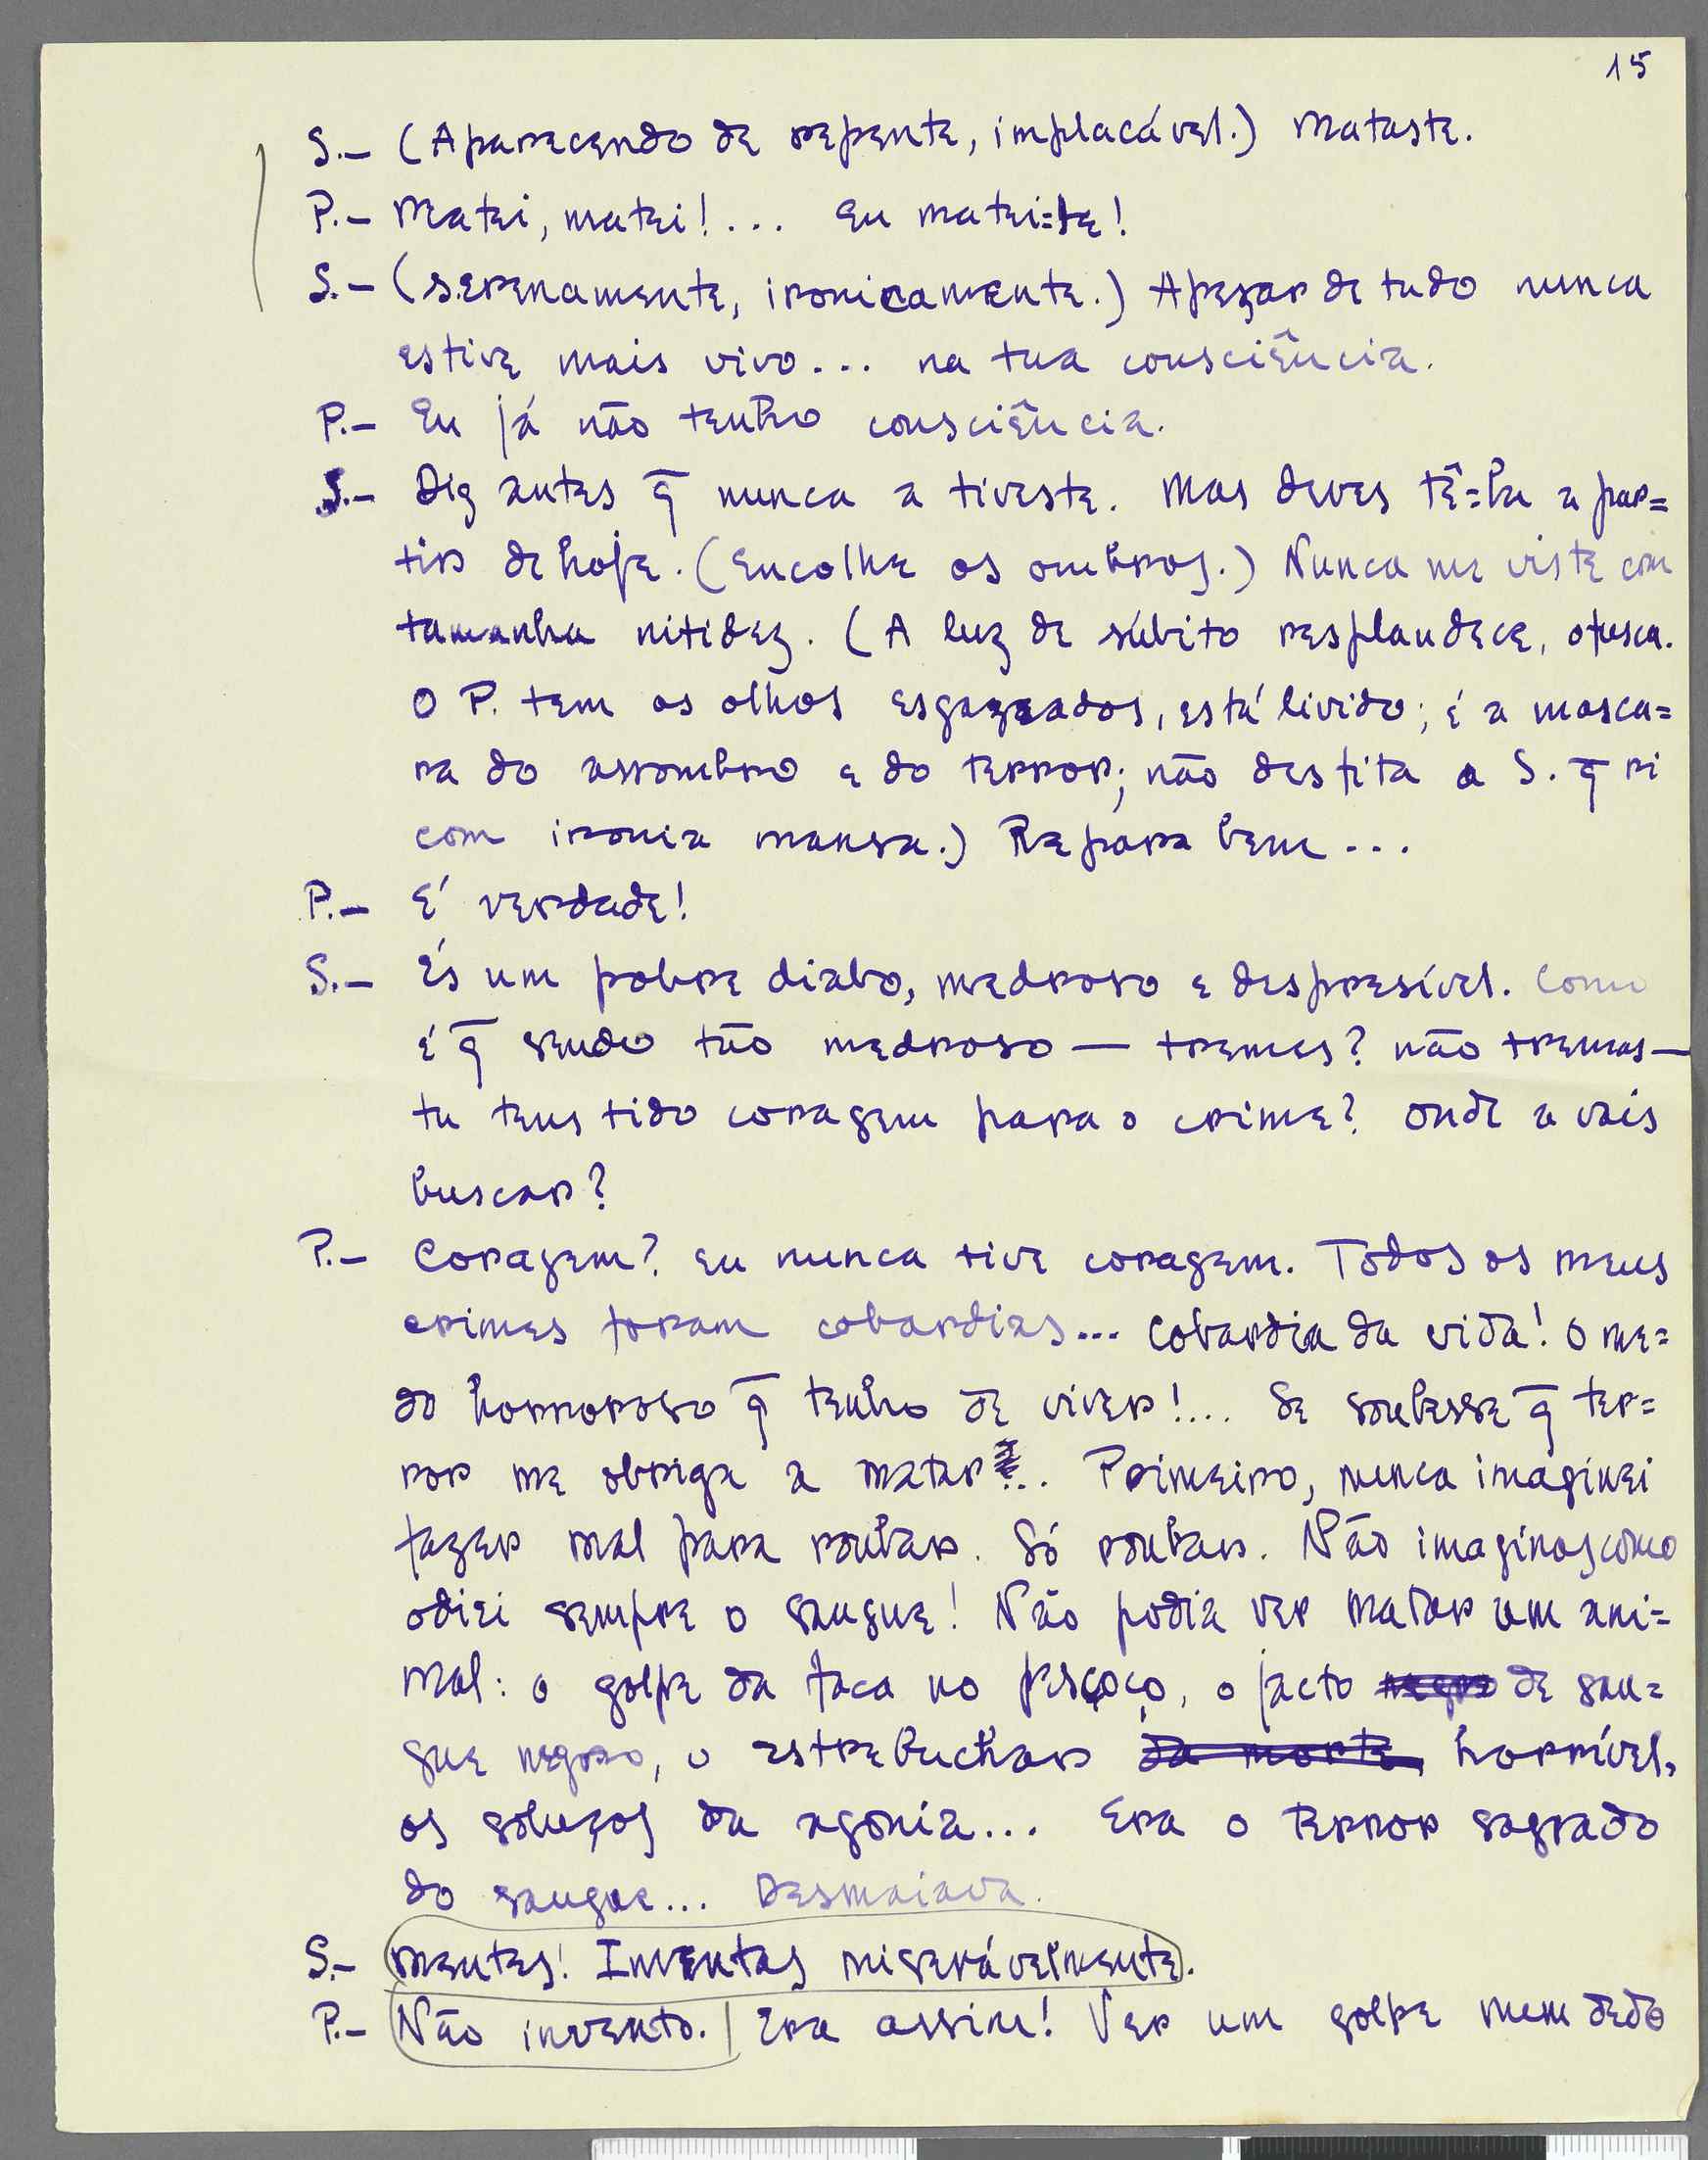 15
S.— (Aparecendo de repente, implacável.) Mataste.
P.— Matei, matei!... Eu matei=te!
S.— (Serenamente, ironicamente.) Apezar de tudo nunca
estive mais vivo... na tua consciência.
P.— Eu já não tenho consciência.
S.— Diz antes q̄ nunca a tiveste. Mas deves tê=la a par=
tir de hoje. (Encolhe os ombros.) Nunca me viste com
tamanha nitidez. (A luz de súbito resplandece, ofusca.
O P. tem os olhos esgazeados, está livido; é a masca=
ra do assombro e do terror; não desfita o S. q̄ ri
com ironia mansa.) Repara bem...
P.— É verdade!
S.— És um pobre diabo, medroso e despresível. Como
é q̄ sendo tão medroso — tremes? não tremas —
tu tens tido coragem para o crime? Onde a vais
buscar?
P.— Coragem? Eu nunca tive coragem. Todos os meus
crimes foram cobardias... Cobardia da vida! O me=
do horroroso q̄ tenho de viver!... Se soubesse q̄ ter=
ror me obriga a matar... Primeiro, nunca imaginei
fazer mal para roubar. Só roubar. Não imaginas como
odiei sempre o sangue! Não podia ver matar um ani=
mal: o golpe da faca no pescoço, o jacto negro de san=
gue negro, o estrebuchar da morte, horrível,
os soluços da agonia... Era o terror sagrado
do sangue... Desmaiava.
S.— Mentes! Inventas miserávelmente.
P.— Não invento. | Era assim! Ver um golpe num dedo